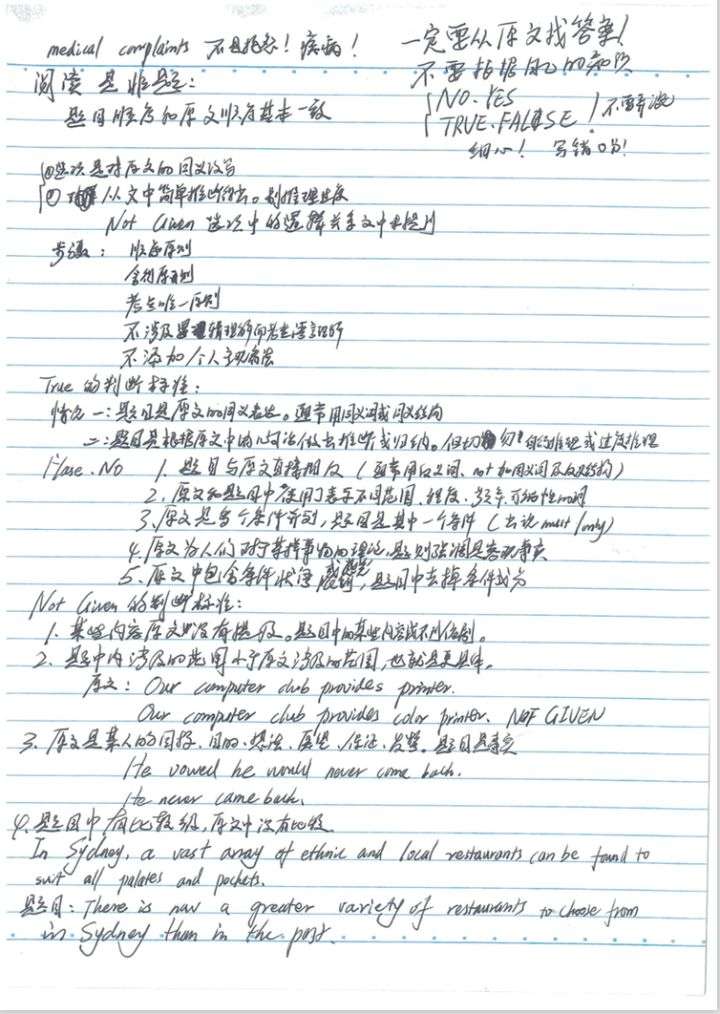 medical complaints 不是抱怨！疾病！
一定要从原文找答案！
不要根据自己的知识
NO. YES
TRUE. FALSE ！不要弄混
细心！ 写错0分！
阅读是非题：
题目顺序和原文顺序基本一致
①选项是对原文的同义改写
② 从文中简单推断得出。别推理过度
Not Given 选项中的选择关系文中未提到
步骤： 顺序原则
原则
考点唯一原则
不涉及
不添加个人主观看法
True 的判断标准：
情况一：题目是原文的同义表达。通常用同义词或同义结构
二：题目是根据原文中的几句话做出推断或归纳。但切勿自行推理或过度推理
False. No 1. 题目与原文直接相反（通常用反义词、not 加同义词及反义结构）
2. 原文和题目中使用了表示不同范围、程度、频率、可能性的词
3. 原文是多个条件并列，题目是其中一个条件（出现 must / only）
4. 原文为人们对于某样事物的理论，题则强调是客观事实
5. 原文中包含条件状语，题目中去掉条件成分
Not Given 的判断标准：
1. 某些内容原文中没有提及。题目中的某些内容找不到依据。
2. 题中内涉及的范围小于原文涉及的范围，也就是更具体。
原文： Our computer club provides printer.
Our computer club provides color printer. NOT GIVEN
3. 原文是某人的目标、目的、想法、愿望、保证、发誓。题目是事实
He vowed he would never come back.
He never came back.
4. 题目中有比较级，原文中没有比较
In Sydney, a vast array of ethnic and local restaurants can be found to
suit all palates and pockets.
题目：There is now a greater variety of restaurants to choose from
in Sydney than in the past.